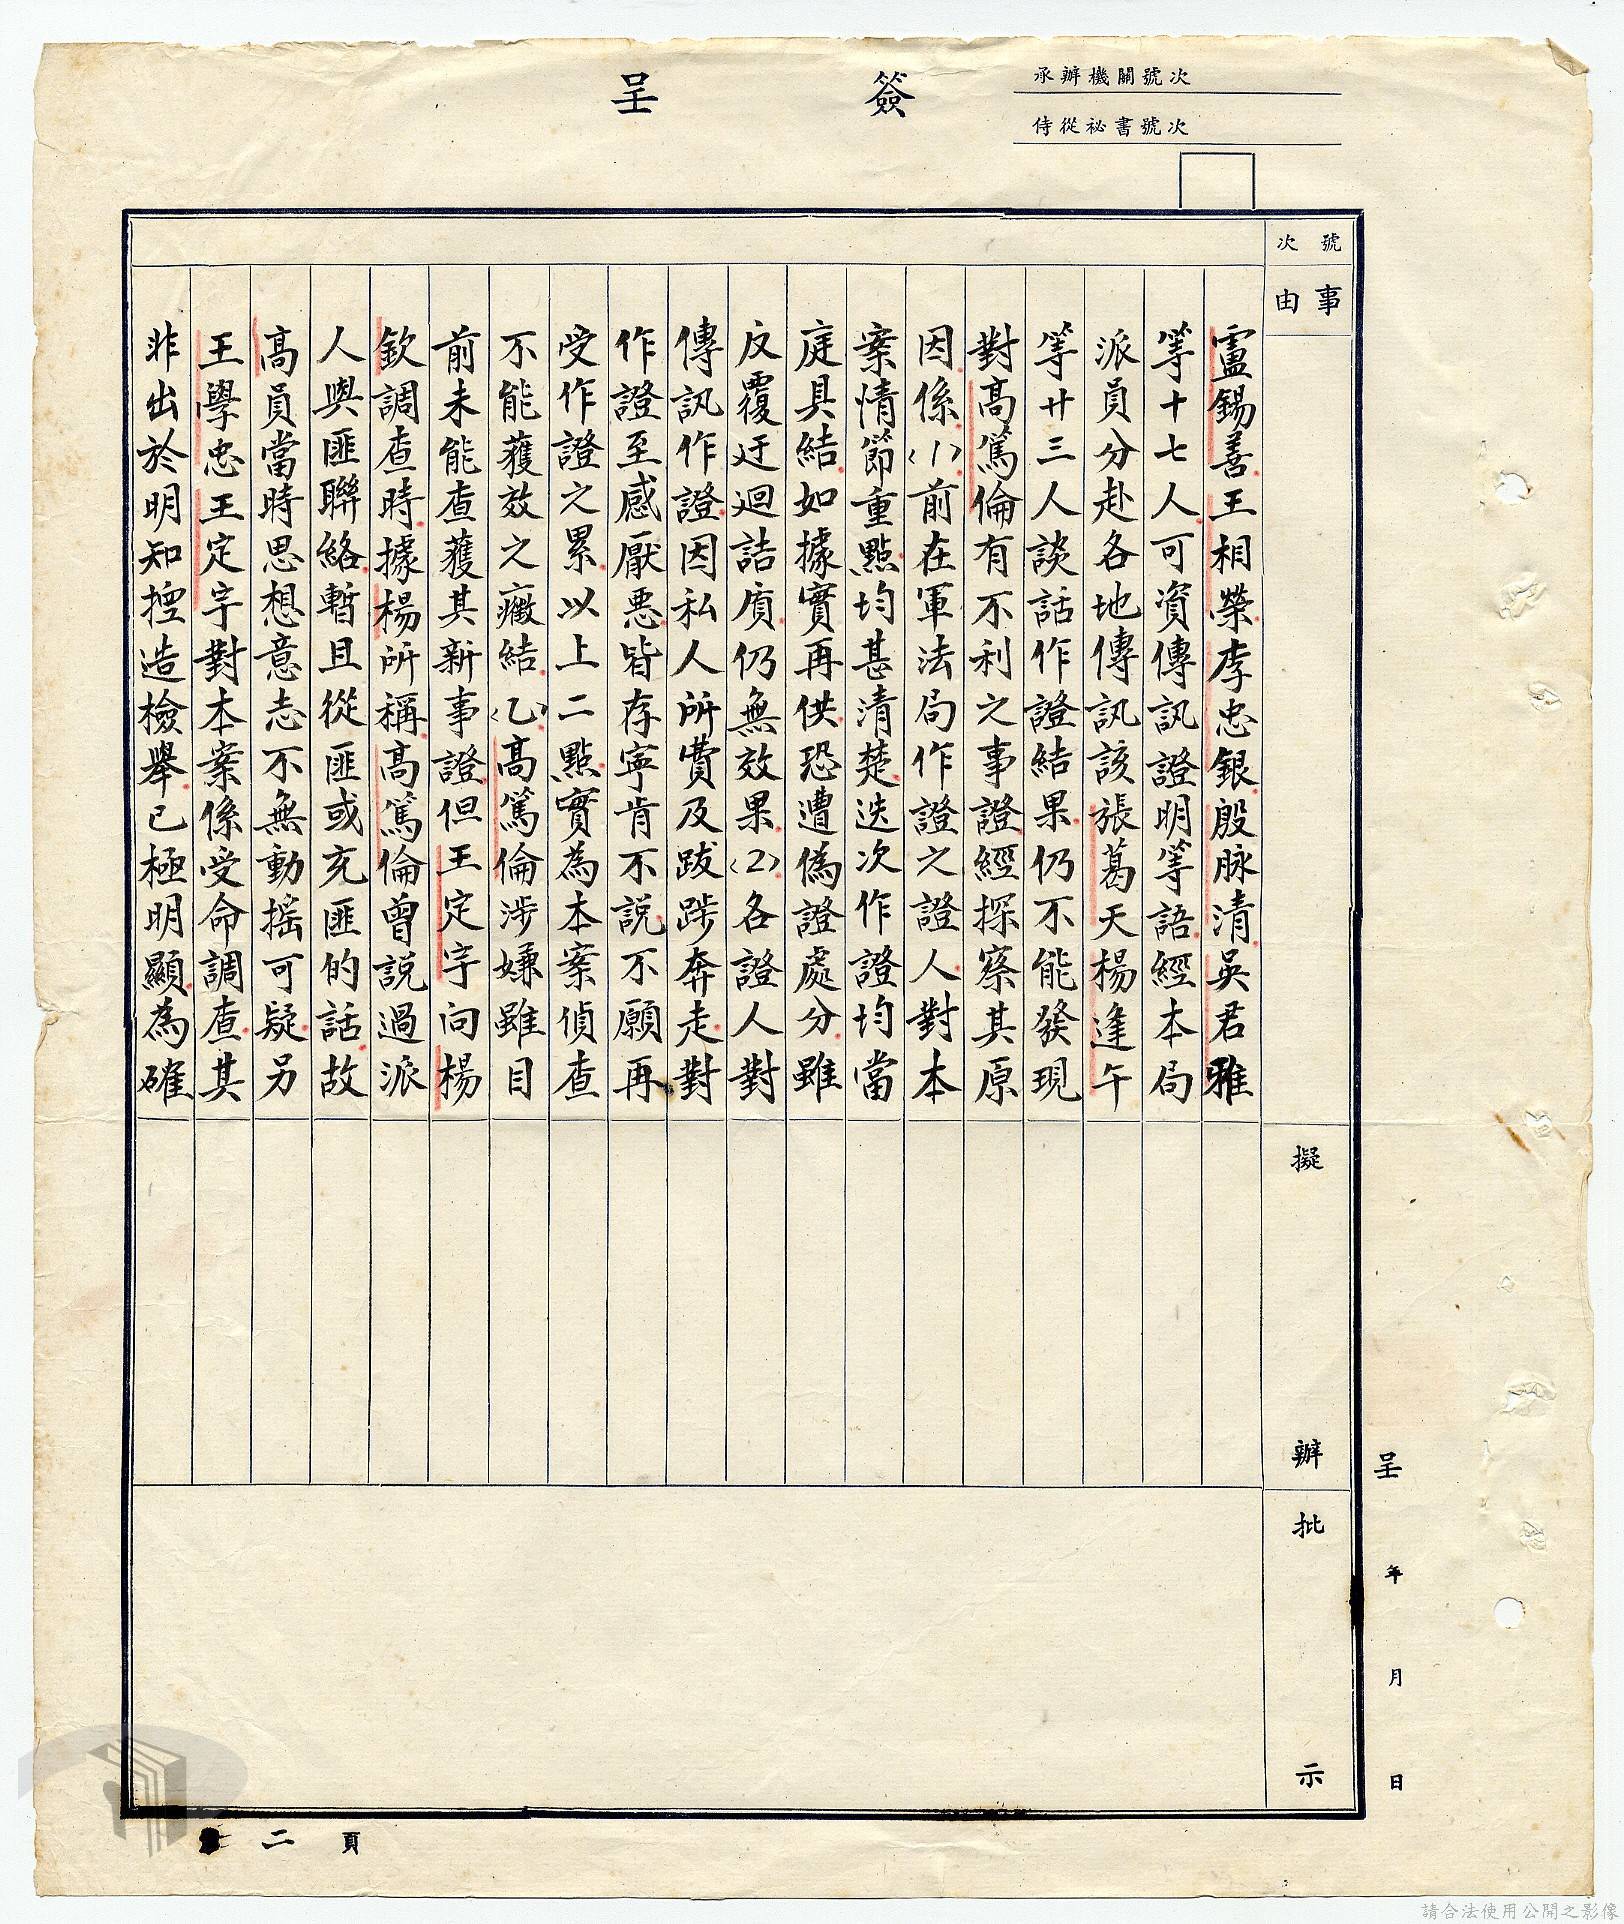 簽呈
承辦機關號次
侍從祕書號次
號次
事由
盧錫善王相榮李忠銀殷脉清吳君雅
等十七人可資傳訊證明等語經本局
派員分赴各地傳訊該張葛天楊逢午
等廿三人談話作證結果仍不能發現
對高篤倫有不利之事證經探察其原
因係(1)前在軍法局作證之證人對本
案情節重點均甚清楚迭次作證均當
庭具結如據實再供恐遭偽證處分雖
反覆迂迴詰質仍無效果(2)各證人對
傳訊作證因私人所費及跋踄奔走對
作證至感厭惡皆存寜肯不說不願再
受作證之累以上二點實為本案偵查
不能獲效之癥結(乙)高篤倫涉嫌雖目
前未能查獲其新事證但王定宇向楊
欽調查時據楊所稱高篤倫曾說過派
人與匪聯絡暫且從匪或充匪的話故
高員當時思想意志不無動搖可疑另
王學忠王定宇對本案係受命調查其
非出於明知捏造檢舉已極明顯為確
擬辦
批示
呈 年 月 日
第二頁
請合法使用公開之影像